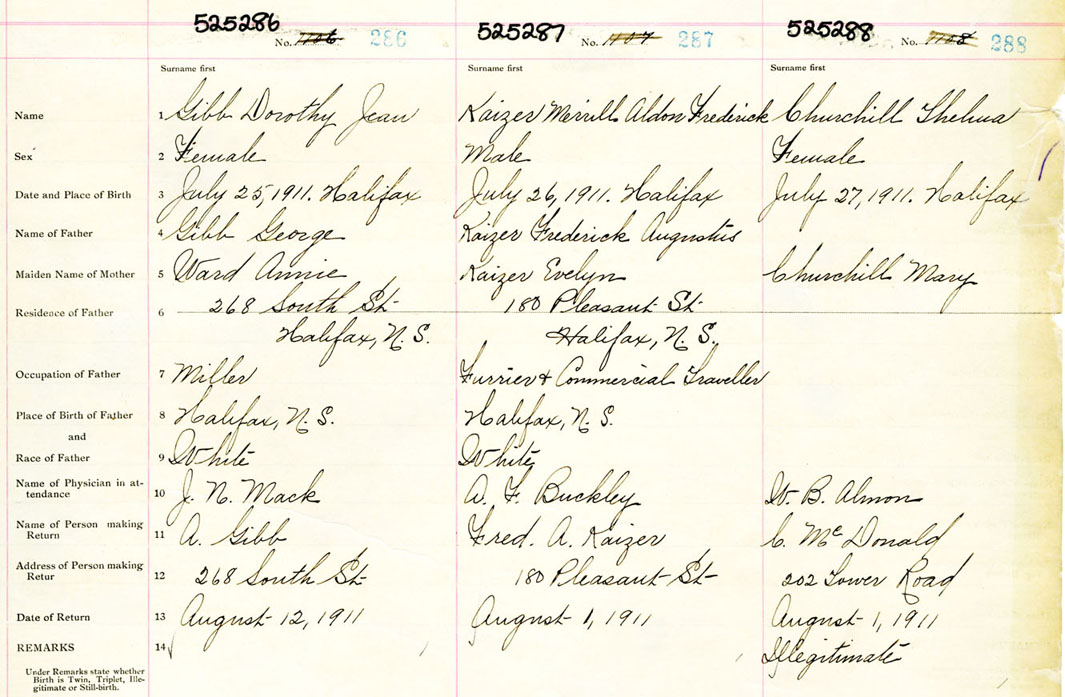 525286 525287 525288
No. 1106 286 No. 1107 287 No. 1108 288
Surname first Surname first Surname first
Name 1 Gibb Dorothy Jean Kaizer Merrill Aldon Frederick Churchill Thelma
Sex 2 Female Male Female
Date and Place of Birth 3 July 25, 1911. Halifax July 26, 1911. Halifax July 27, 1911. Halifax
Name of Father 4 Gibb George Kaizer Frederick Augustus
Maiden Name of Mother 5 Ward Annie Kaizer Evelyn Churchill Mary
Residence of Father 6 268 South St 180 Pleasant St
Halifax, N. S. Halifax, N. S.
Occupation of Father 7 Miller Furrier & Commercial Traveller
Place of Birth of Father 8 Halifax, N. S. Halifax, N. S.
and
Race of Father 9 White White
Name of Physician in at-
tendance 10 J. N. Mack A. F. Buckley W. B. Almon
Name of Person making
Return 11 A. Gibb Fred. A. Kaizer C. McDonald
Address of Person making
Retur 12 268 South St 180 Pleasant St 202 Tower Road
Date of Return 13 August 12, 1911 August 1, 1911 August 1, 1911
REMARKS 14 Illegitimate
Under Remarks state whether
Birth is Twin, Triplet, Ille-
gitimate or Still-birth.